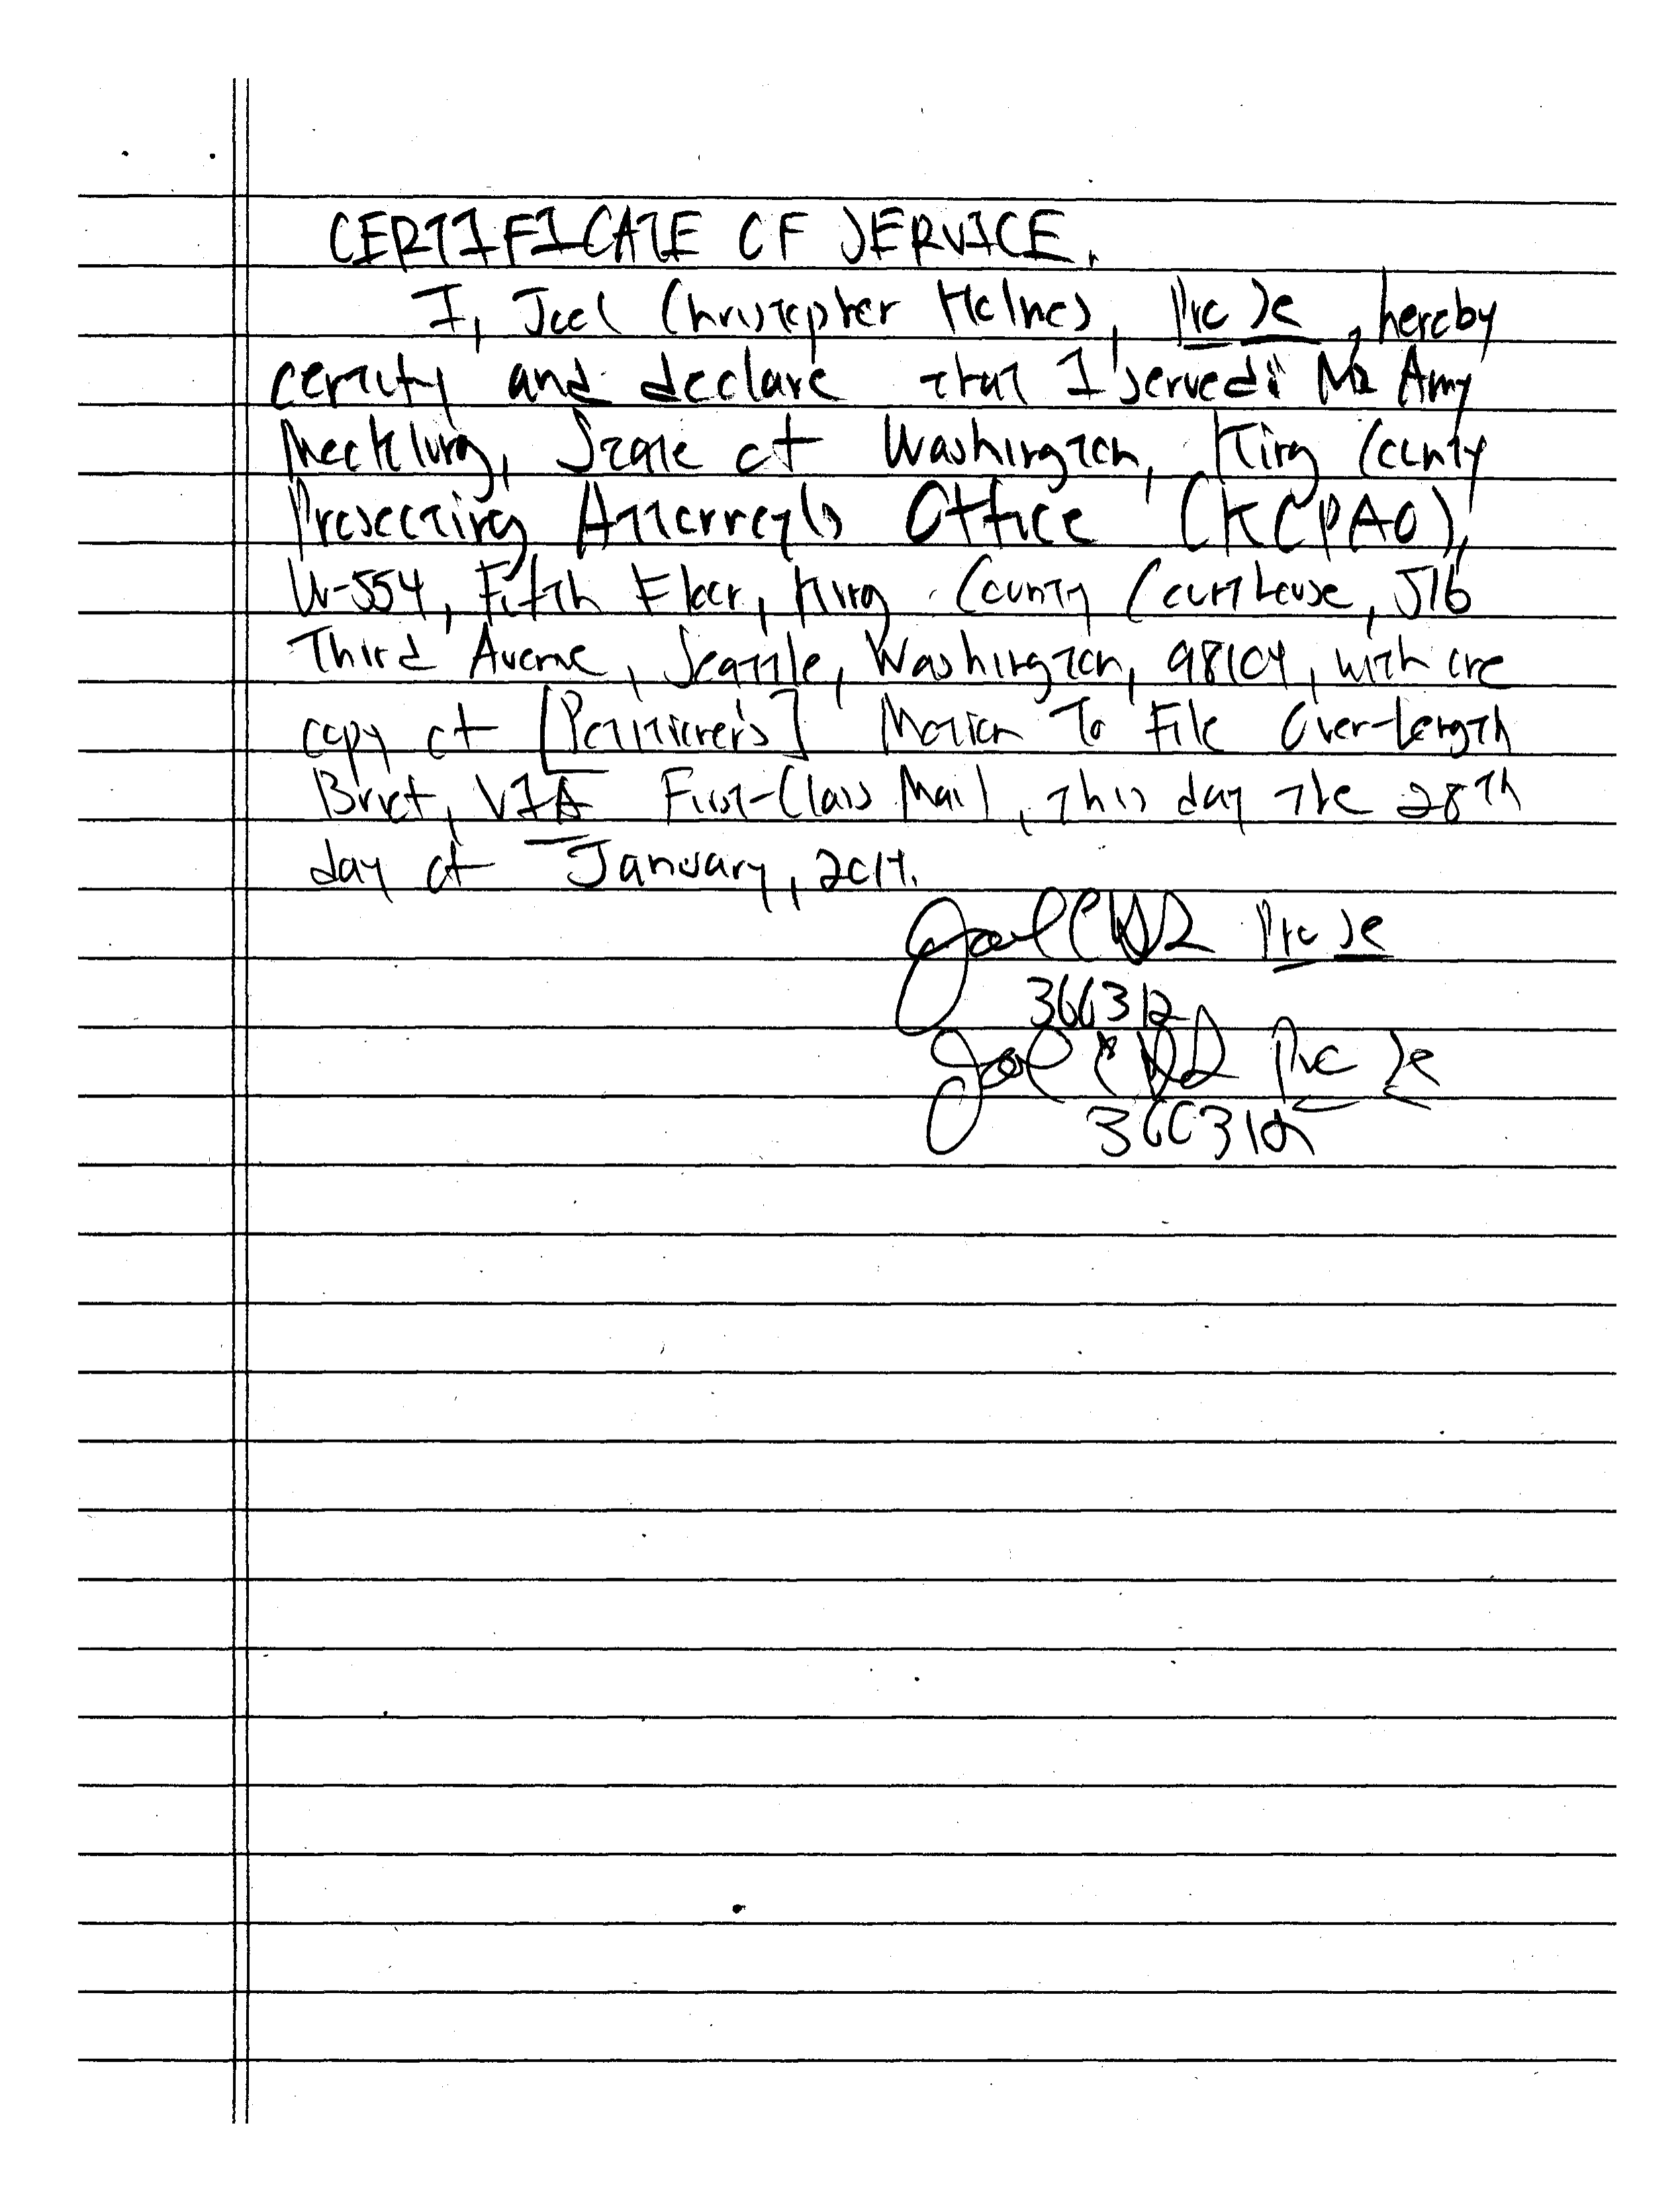 CERTIFICATE OF SERVICE.
I, Joel Christopher Holmes, Pro Se, hereby
certify and declare that I served: Ms Amy
Mecklung, State of Washington, King County
Prosecuting Attorney's Office (KCPAO),
W-554, Fifth Floor, King County Courthouse, 516
Third Avenue, Seattle, Washington, 98104, with one
copy of [Petitioner's] Motion To File Over-Length
Brief, VIA First-Class Mail, this day the 28th
day of January, 2014.
Pro Se
366312
Pro Se
366312